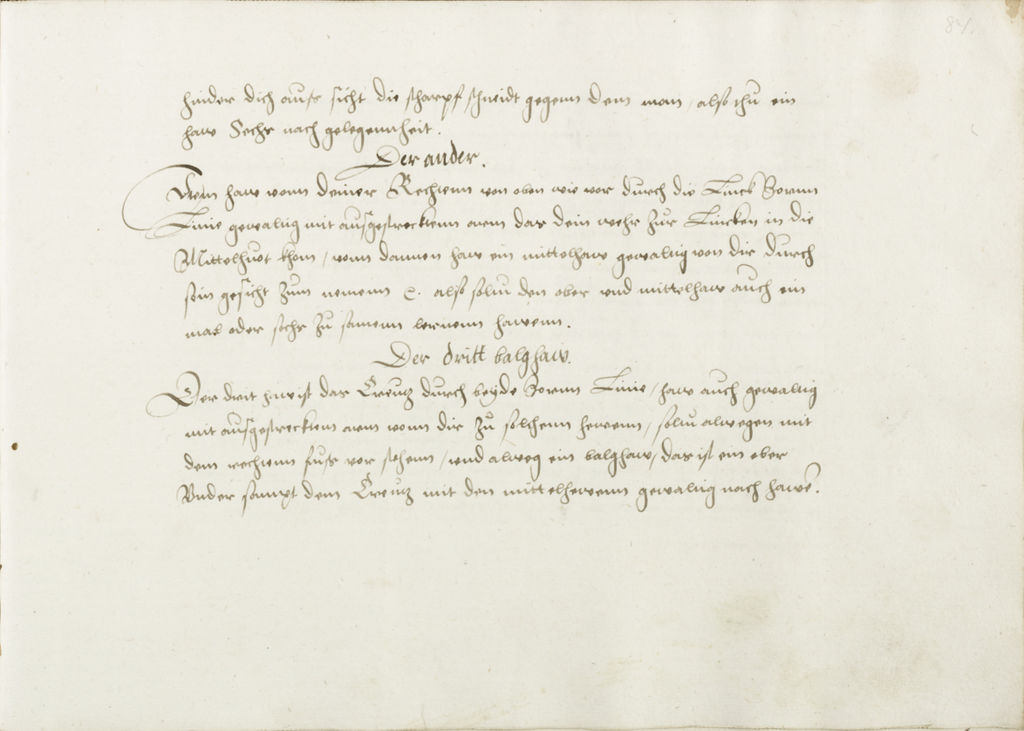 hinder dich auss sicht die scharpf schneidt gegenn dem man, also thu ein
haw Sechs nach gelegennheit.
Der ander.
Item haw vonn deiner Rechtenn von oben wie vor durch die Linck Zornn
Linie gewaltig mit aussgestrecktenn arm das dein wehr zur Lincken in die
Mittelhuot khom, vonn dannen haw ein mittelhaw gewaltig von dir durch
sein gesicht zum nemenn also soltu den ober und mittelhaw auch ein
mal oder sechs zu samenn lernenn hawenn.
Der dritt balghaw.
Der drit haw ist das Creutz durch beyde Zornn Linie, haw auch gewaltig
mit aussgestrecktem arm vonn dir zu solchenn hewenn, soltu alwegen mit
dem rechtenn fuss vor stehenn, und alweg ein balghaw, das ist ein ober
Under sampt dem Creutz mit den mittelhewenn gewaltig nach hawe.